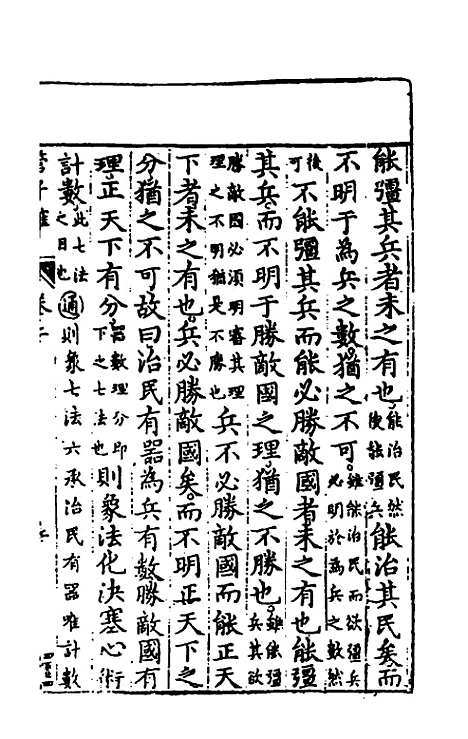 能彊其兵者未之有也能治民然後能彊兵能治其民矣而
不明于為兵之數猶之不可雖能治民而欲彊兵必明於為兵之數然
後可不能彊其兵而能必勝敵國者未之有也能彊
其兵而不明于勝敵國之理猶之不勝也雖能彊兵其欲
勝敵國必須明審其理理之不明猶是不勝也兵不必勝敵國而能正天
下者未之有也兵必勝敵國矣而不明正天下之
分猶之不可故曰治民有器為兵有數勝敵國有
理正天下有分器數理分即下之七法也則象法化決塞心術
計數此七法之目也通則象七法六承治民有器唯計數